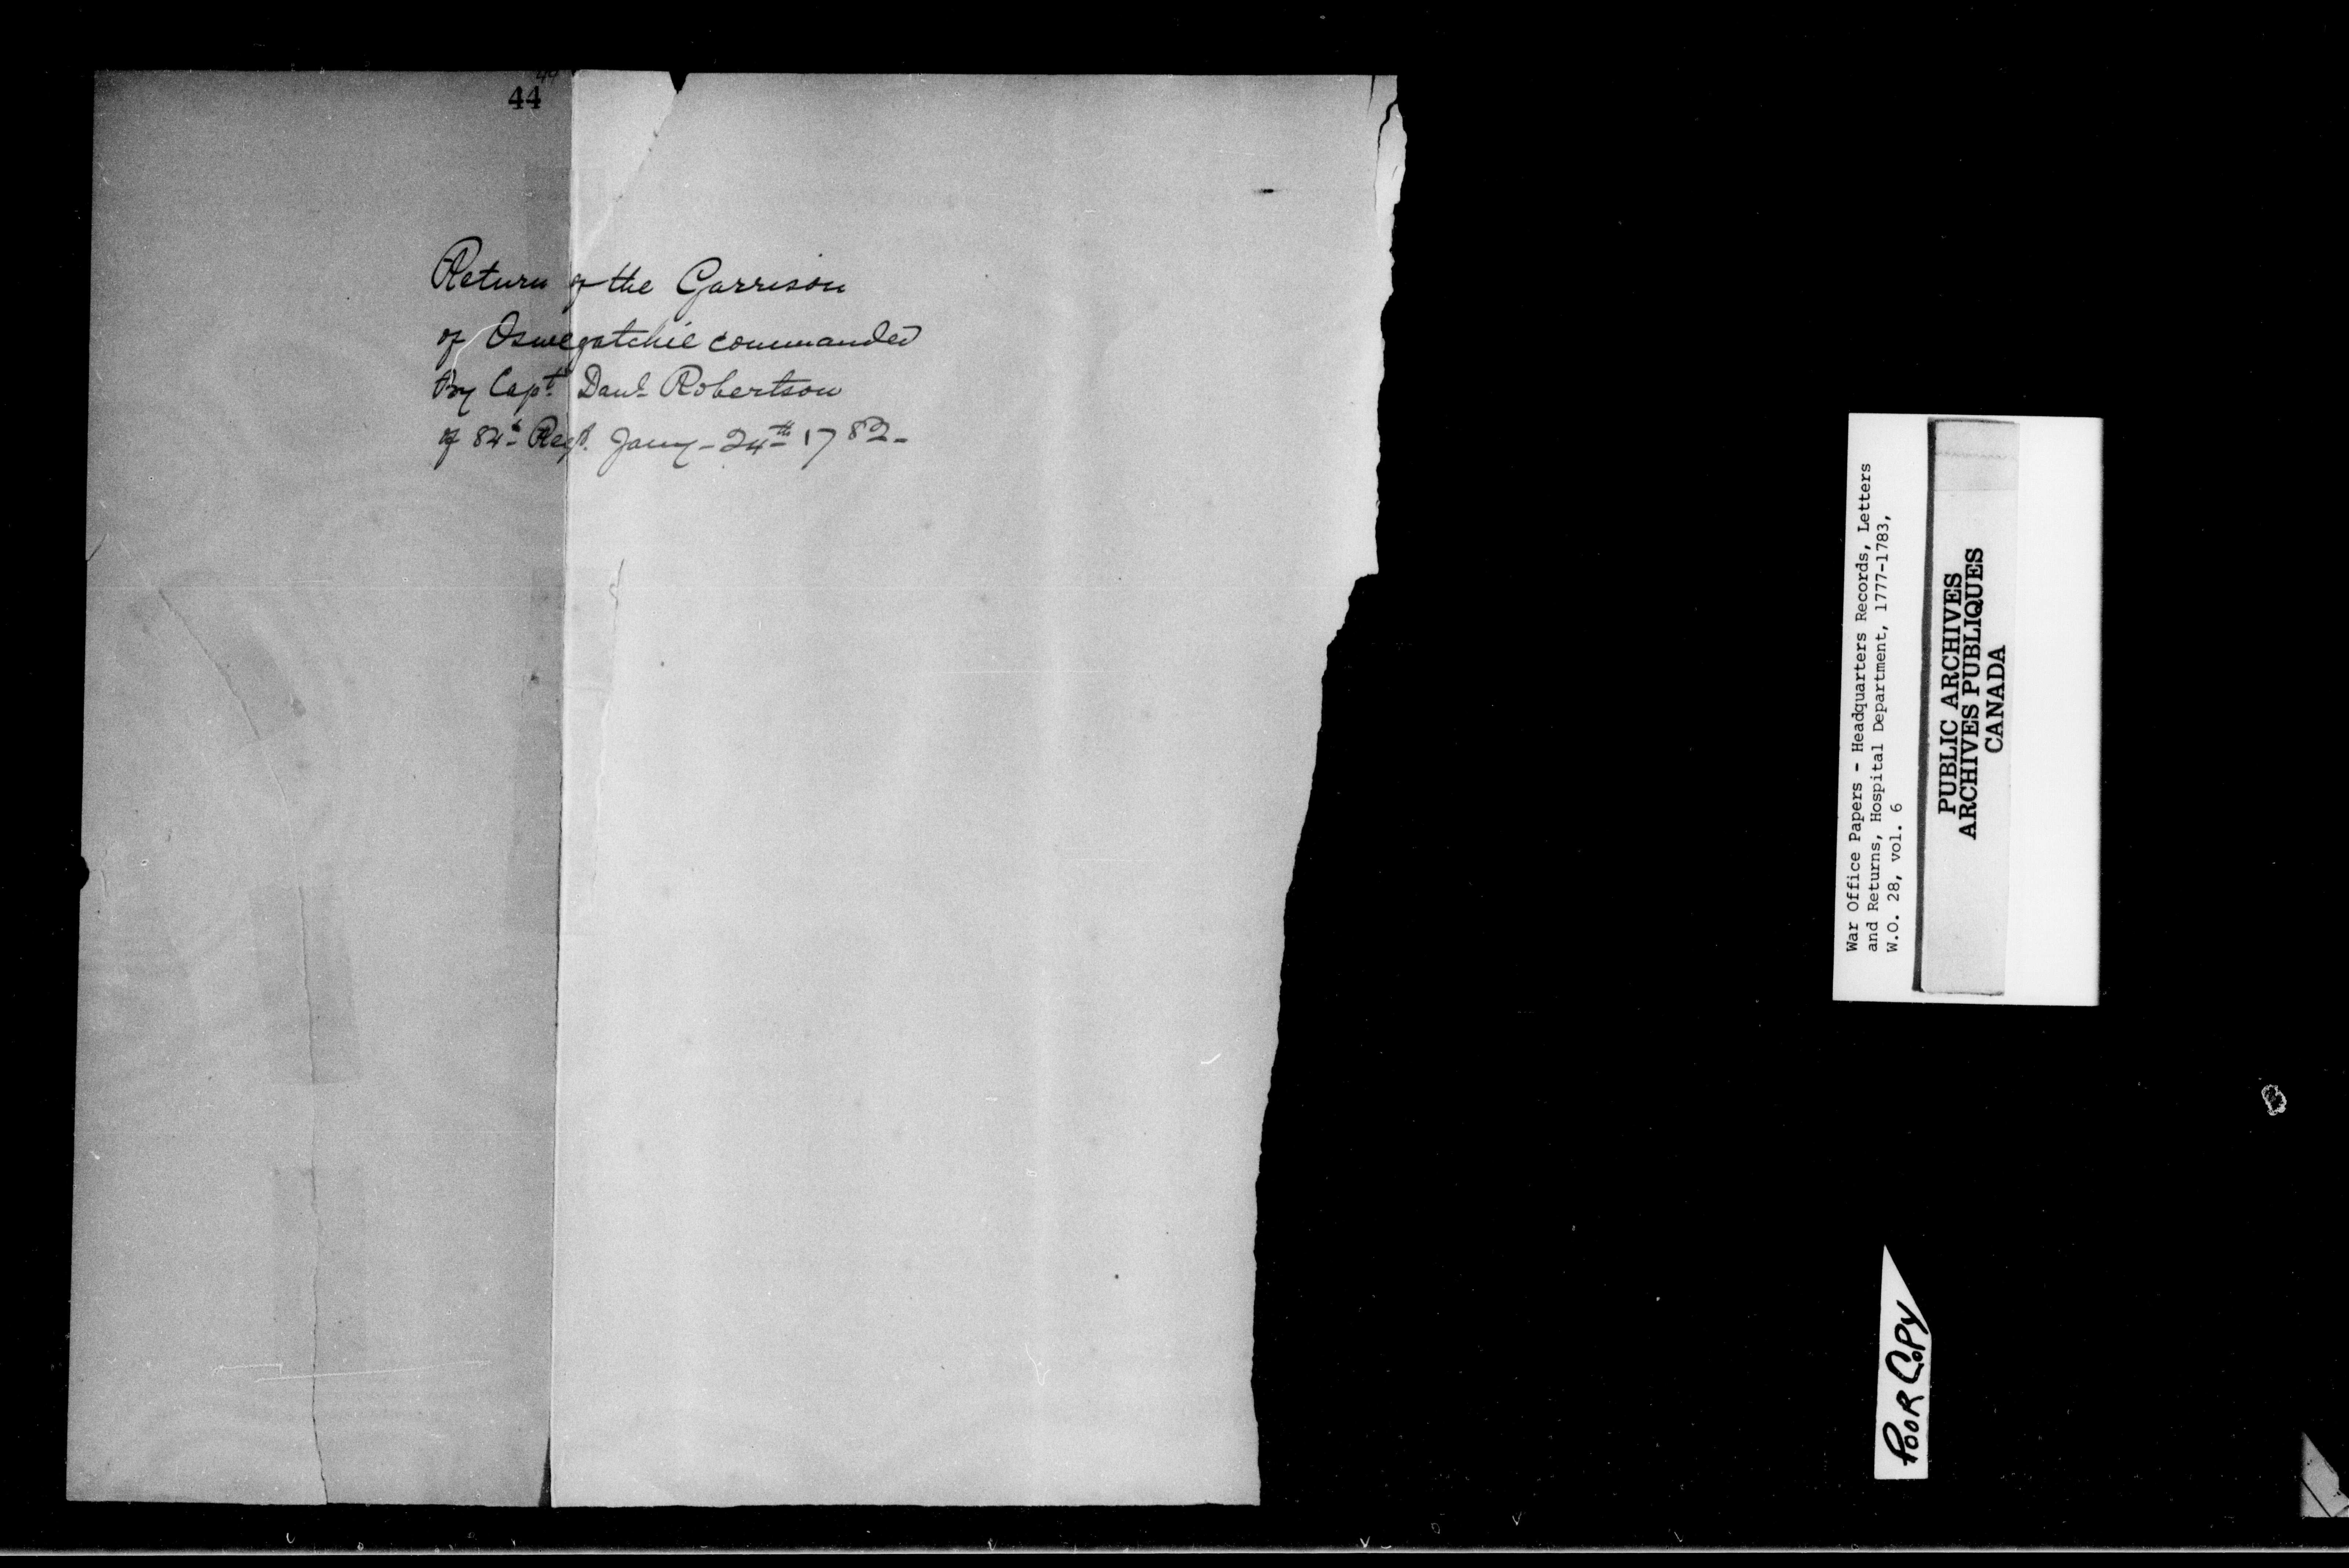 44
44
Return of the Garrison
of Oswegatchie commanded
By Capt Danl Robertson
of 84t Regt. Jany - 24th 1782 -
War Office Papers - Headquarters Records, Letters
and Returns, Hospital Department, 1777-1783,
W.O. 28, vol. 6
PUBLIC ARCHIVES
ARCHIVES PUBLIQUES
CANADA
POOR COPY